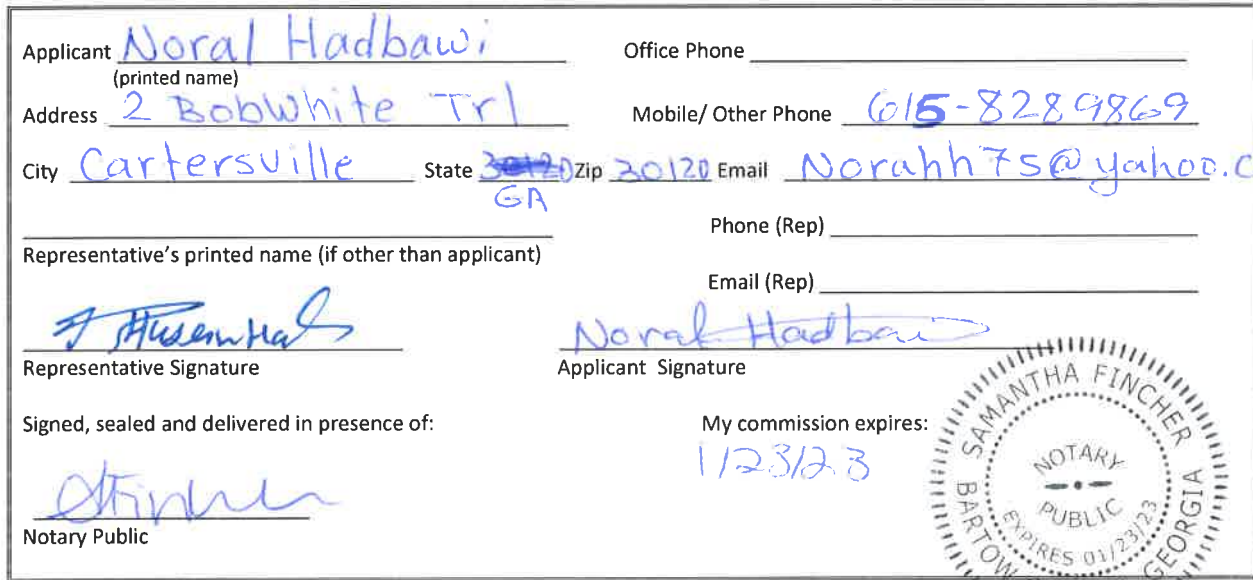 Applicant Noral Hadbawi Office Phone
(printed name)
Address 2 BobWhite Trl Mobile/ Other Phone 615-8289869
City Cartersville State 30120 Zip 30120 Email Norahh75@yahoo.c
GA
Phone (Rep)
Representative's printed name (if other than applicant)
Email (Rep)
Noral Hadbawi
Representative Signature Applicant Signature
Signed, sealed and delivered in presence of: My commission expires:
1/23/23
Notary Public
SAMANTHA FINCHER
NOTARY
PUBLIC
EXPIRES 01/23/23
BARTOW GEORGIA